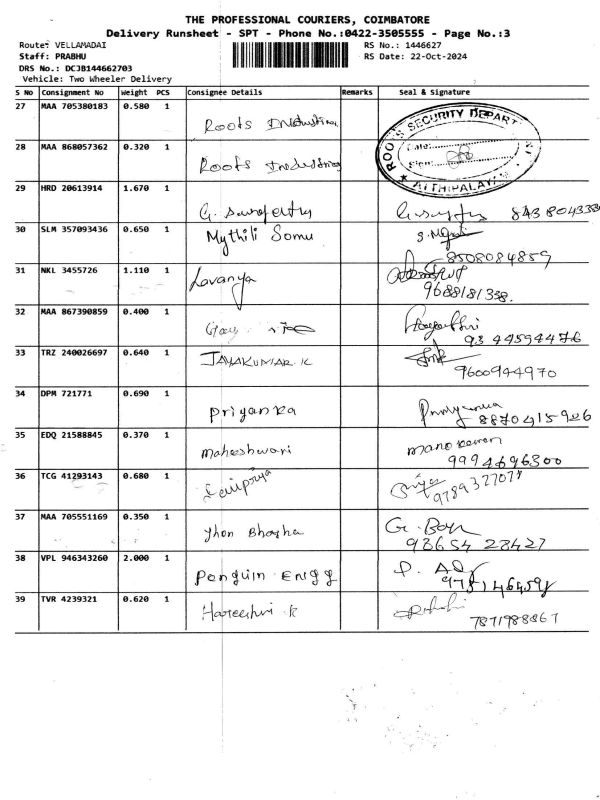 THE PROFESSIONAL COURIERS, COIMBATORE
Delivery Runsheet - SPT - Phone No.:0422-3505555 - Page No.:3
Route: VELLAMADAI RS No.: 1446627
Staff: PRABHU RS Date: 22-Oct-2024
DRS No.: DCJB144662703
Vehicle: Two Wheeler Delivery
S No Consignment No Weight PCS Consignee Details Remarks Seal & Signature
27 MAA 705380183 0.580 1 Roots Industries
ROOTS SECURITY DEPART
Date:
Sign:
ATHIPALAYAM
28 MAA 868057362 0.320 1 Roots Industries
29 HRD 20613914 1.670 1 G.
30 SLM 357093436 0.650 1 Mythili Somu
8508084859
31 NKL 3455726 1.110 1 Lavanya
9688181338.
32 MAA 867390859 0.400 1
93 44594476
33 TRZ 240026697 0.640 1 JAYAKUMAR.K
9600944970
34 DPM 721771 0.690 1 Priyanka
8870415906
35 EDQ 21588845 0.370 1 maheshwari
9994696300
36 TCG 41293143 0.680 1
37 MAA 705551169 0.350 1 Jhon Bhasha
93654 28427
38 VPL 946343260 2.000 1 Penguin Engg
39 TVR 4239321 0.620 1
7871988867